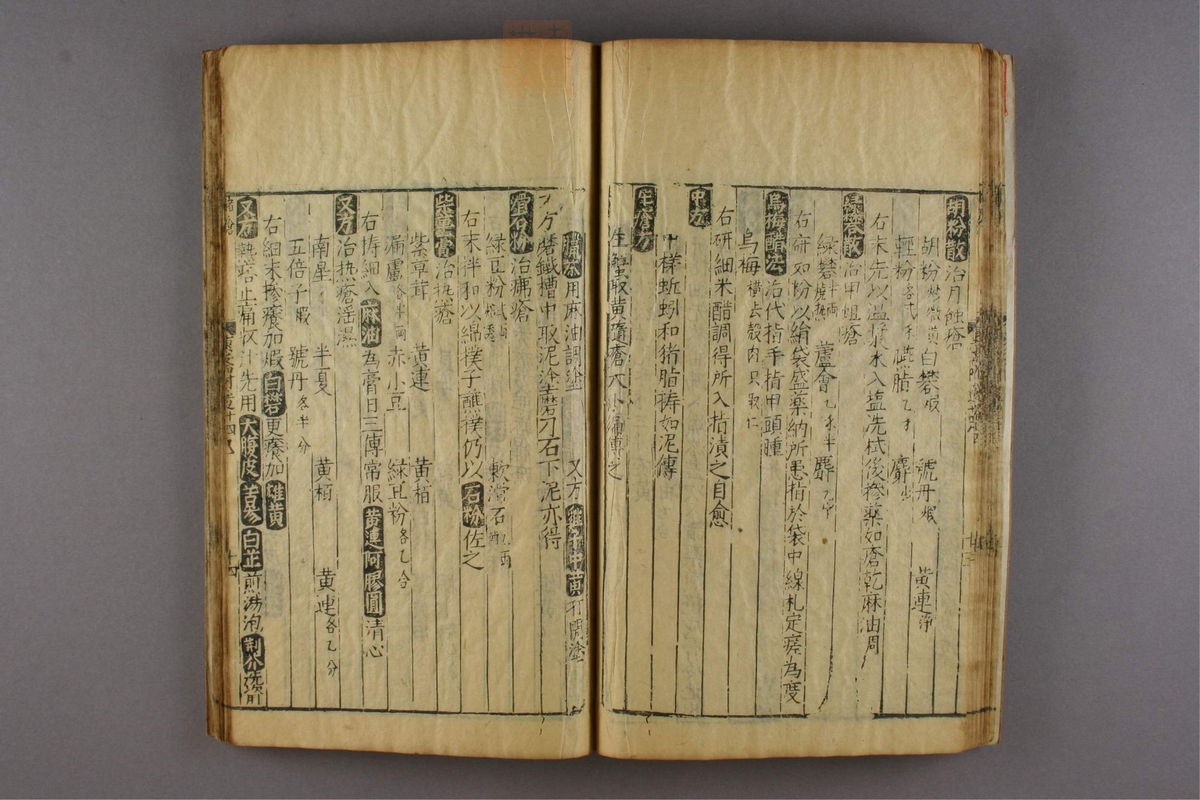 胡粉散治月蝕瘡
胡粉炒微黄白礬煅 號丹煅 黄連淨
輕粉各弍 胭脂乙 麝少
右末先以溫漿水入塩洗拭後糝藥如瘡乾麻油調
緑礬散治甲疽瘡
緑礬半兩 蘆會乙 半麝乙字
右研如粉以絹袋盛藥納所患指於袋中線札定瘥為度
烏梅醋法治代指手指甲頭腫
烏梅 去殻肉只取仁
右研細米醋調得所入指漬之自愈
中方
樣蚯蚓和猪脂擣如泥傅
瘡方
生蟹取黄隨瘡大小 傅之
用麻油調塗 又方 中黄打開塗
又方磨鐵槽中取泥塗磨刀石下泥亦得
滑石粉治痱瘡
緑豆粉 軟滑石
右末拌和以綿撲子蘸撲仍以石粉佐之
柴草膏治热瘡
紫草茸 黄連 黄栢
漏蘆各半兩 赤小豆 緑豆粉各乙合
右擣細入麻油為膏日三傅常服黄連阿膠圓清心
又方治热瘡淫濕
南星 半夏 黄栢 黄連各乙分
五倍子煅 號丹各半分
右細末摻癢加煅白礬更癢加雄黄
又方熱瘡止痛收汁先用大腹皮苦參白芷煎湯泡荆芥煎